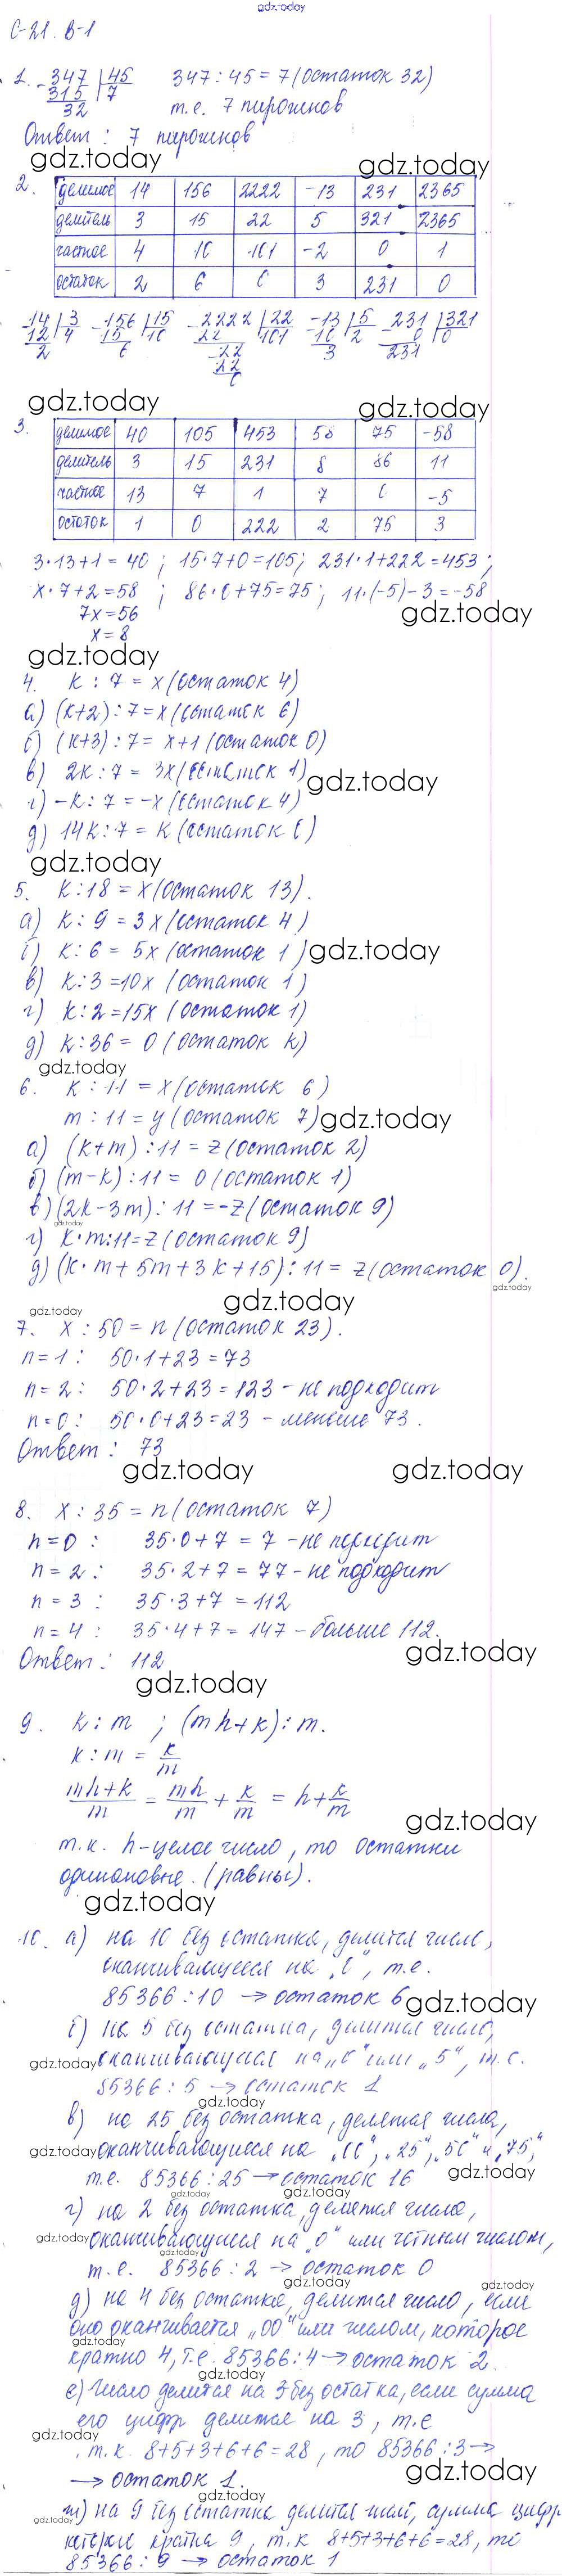 gdz.today
С-21. В-1
1. 347 | 45    347 : 45 = 7 (остаток 32)
315 | 7    т.е. 7 пирожков
32
Ответ : 7 пирожков
gdz.today gdz.today
2.
делимое 14 156 2222 -13 231 2365
делитель 3 15 22 5 321 2365
частное 4 10 101 -2 0 1
остаток 2 6 0 3 231 0
14 | 3   156 | 15   2222 | 22   -13 | 5   231 | 321
12 | 4   15 | 10   22 | 101   10 | 2   0 | 0
2   6   22   3   231
22
0
gdz.today gdz.today
3.
делимое 40 105 453 58 75 -58
делитель 3 15 231 8 86 11
частное 13 7 1 7 0 -5
остаток 1 0 222 2 75 3
3·13+1=40 ; 15·7+0=105; 231·1+222=453;
x·7+2=58 ; 86·0+75=75; 11·(-5)-3=-58
7x=56 gdz.today
x=8
gdz.today
4. k : 7 = x (остаток 4)
а) (k+2) : 7 = x (остаток 6)
б) (k+3) : 7 = x+1 (остаток 0)
в) 2k : 7 = 3x (остаток 1)
gdz.today
г) -k : 7 = -x (остаток 4)
д) 14k : 7 = k (остаток 0)
gdz.today
5. k : 18 = x (остаток 13).
а) k : 9 = 3x (остаток 4)
б) k : 6 = 5x (остаток 1) gdz.today
в) k : 3 = 10x (остаток 1)
г) k : 2 = 15x (остаток 1)
д) k : 36 = 0 (остаток k)
gdz.today
6. k : 11 = x (остаток 6)
m : 11 = y (остаток 7) gdz.today
а) (k+m) : 11 = z (остаток 2)
б) (m-k) : 11 = 0 (остаток 1)
в) (2k-3m) : 11 = -z (остаток 9)
gdz.today
г) k·m:11=z (остаток 9)
д) (k·m+5m+3k+15) : 11 = z (остаток 0).
gdz.today
gdz.today
gdz.today
7. x : 50 = n (остаток 23).
n=1 : 50·1+23=73
n=2 : 50·2+23=123 - не подходит
n=0 : 50·0+23=23 - меньше 73.
Ответ : 73
gdz.today gdz.today
8. x : 35 = n (остаток 7)
n=0 : 35·0+7=7 - не подходит
n=2 : 35·2+7=77 - не подходит
n=3 : 35·3+7=112
n=4 : 35·4+7=147 - больше 112.
Ответ : 112 gdz.today
gdz.today
9. k : m ; (mh+k) : m.
k : m = k/m
(mh+k)/m = mh/m + k/m = h + k/m
gdz.today
т.к. h - целое число, то остатки
одинаковые. (равны).
gdz.today
10. а) на 10 без остатка, делится число,
оканчивающееся на „0“, т.е.
85366 : 10 → остаток 6 gdz.today
б) на 5 без остатка, делится число,
gdz.today оканчивающееся на „0“ или „5“, т.е.
85366 : 5 → остаток 1
gdz.today
в) на 25 без остатка, делятся числа,
gdz.today оканчивающиеся на „00“, „25“, „50“ и „75“,
т.е. 85366 : 25 → остаток 16 gdz.today
gdz.today gdz.today
г) на 2 без остатка, делятся числа,
gdz.today оканчивающиеся на „0“ или четным числом,
gdz.today
т.е. 85366 : 2 → остаток 0
gdz.today gdz.today
д) на 4 без остатка, делится число, если
оно оканчивается „00“ или числом, которое
gdz.today
кратно 4, т.е. 85366 : 4 → остаток 2
gdz.today
е) Число делится на 3 без остатка, если сумма
его цифр делится на 3, т.е
gdz.today
т.к. 8+5+3+6+6=28, то 85366 : 3 →
→ остаток 1. gdz.today
gdz.today
ж) на 9 без остатка делится число, сумма цифр
gdz.today gdz.today
которых кратна 9, т.к 8+5+3+6+6=28, то
85366 : 9 → остаток 1